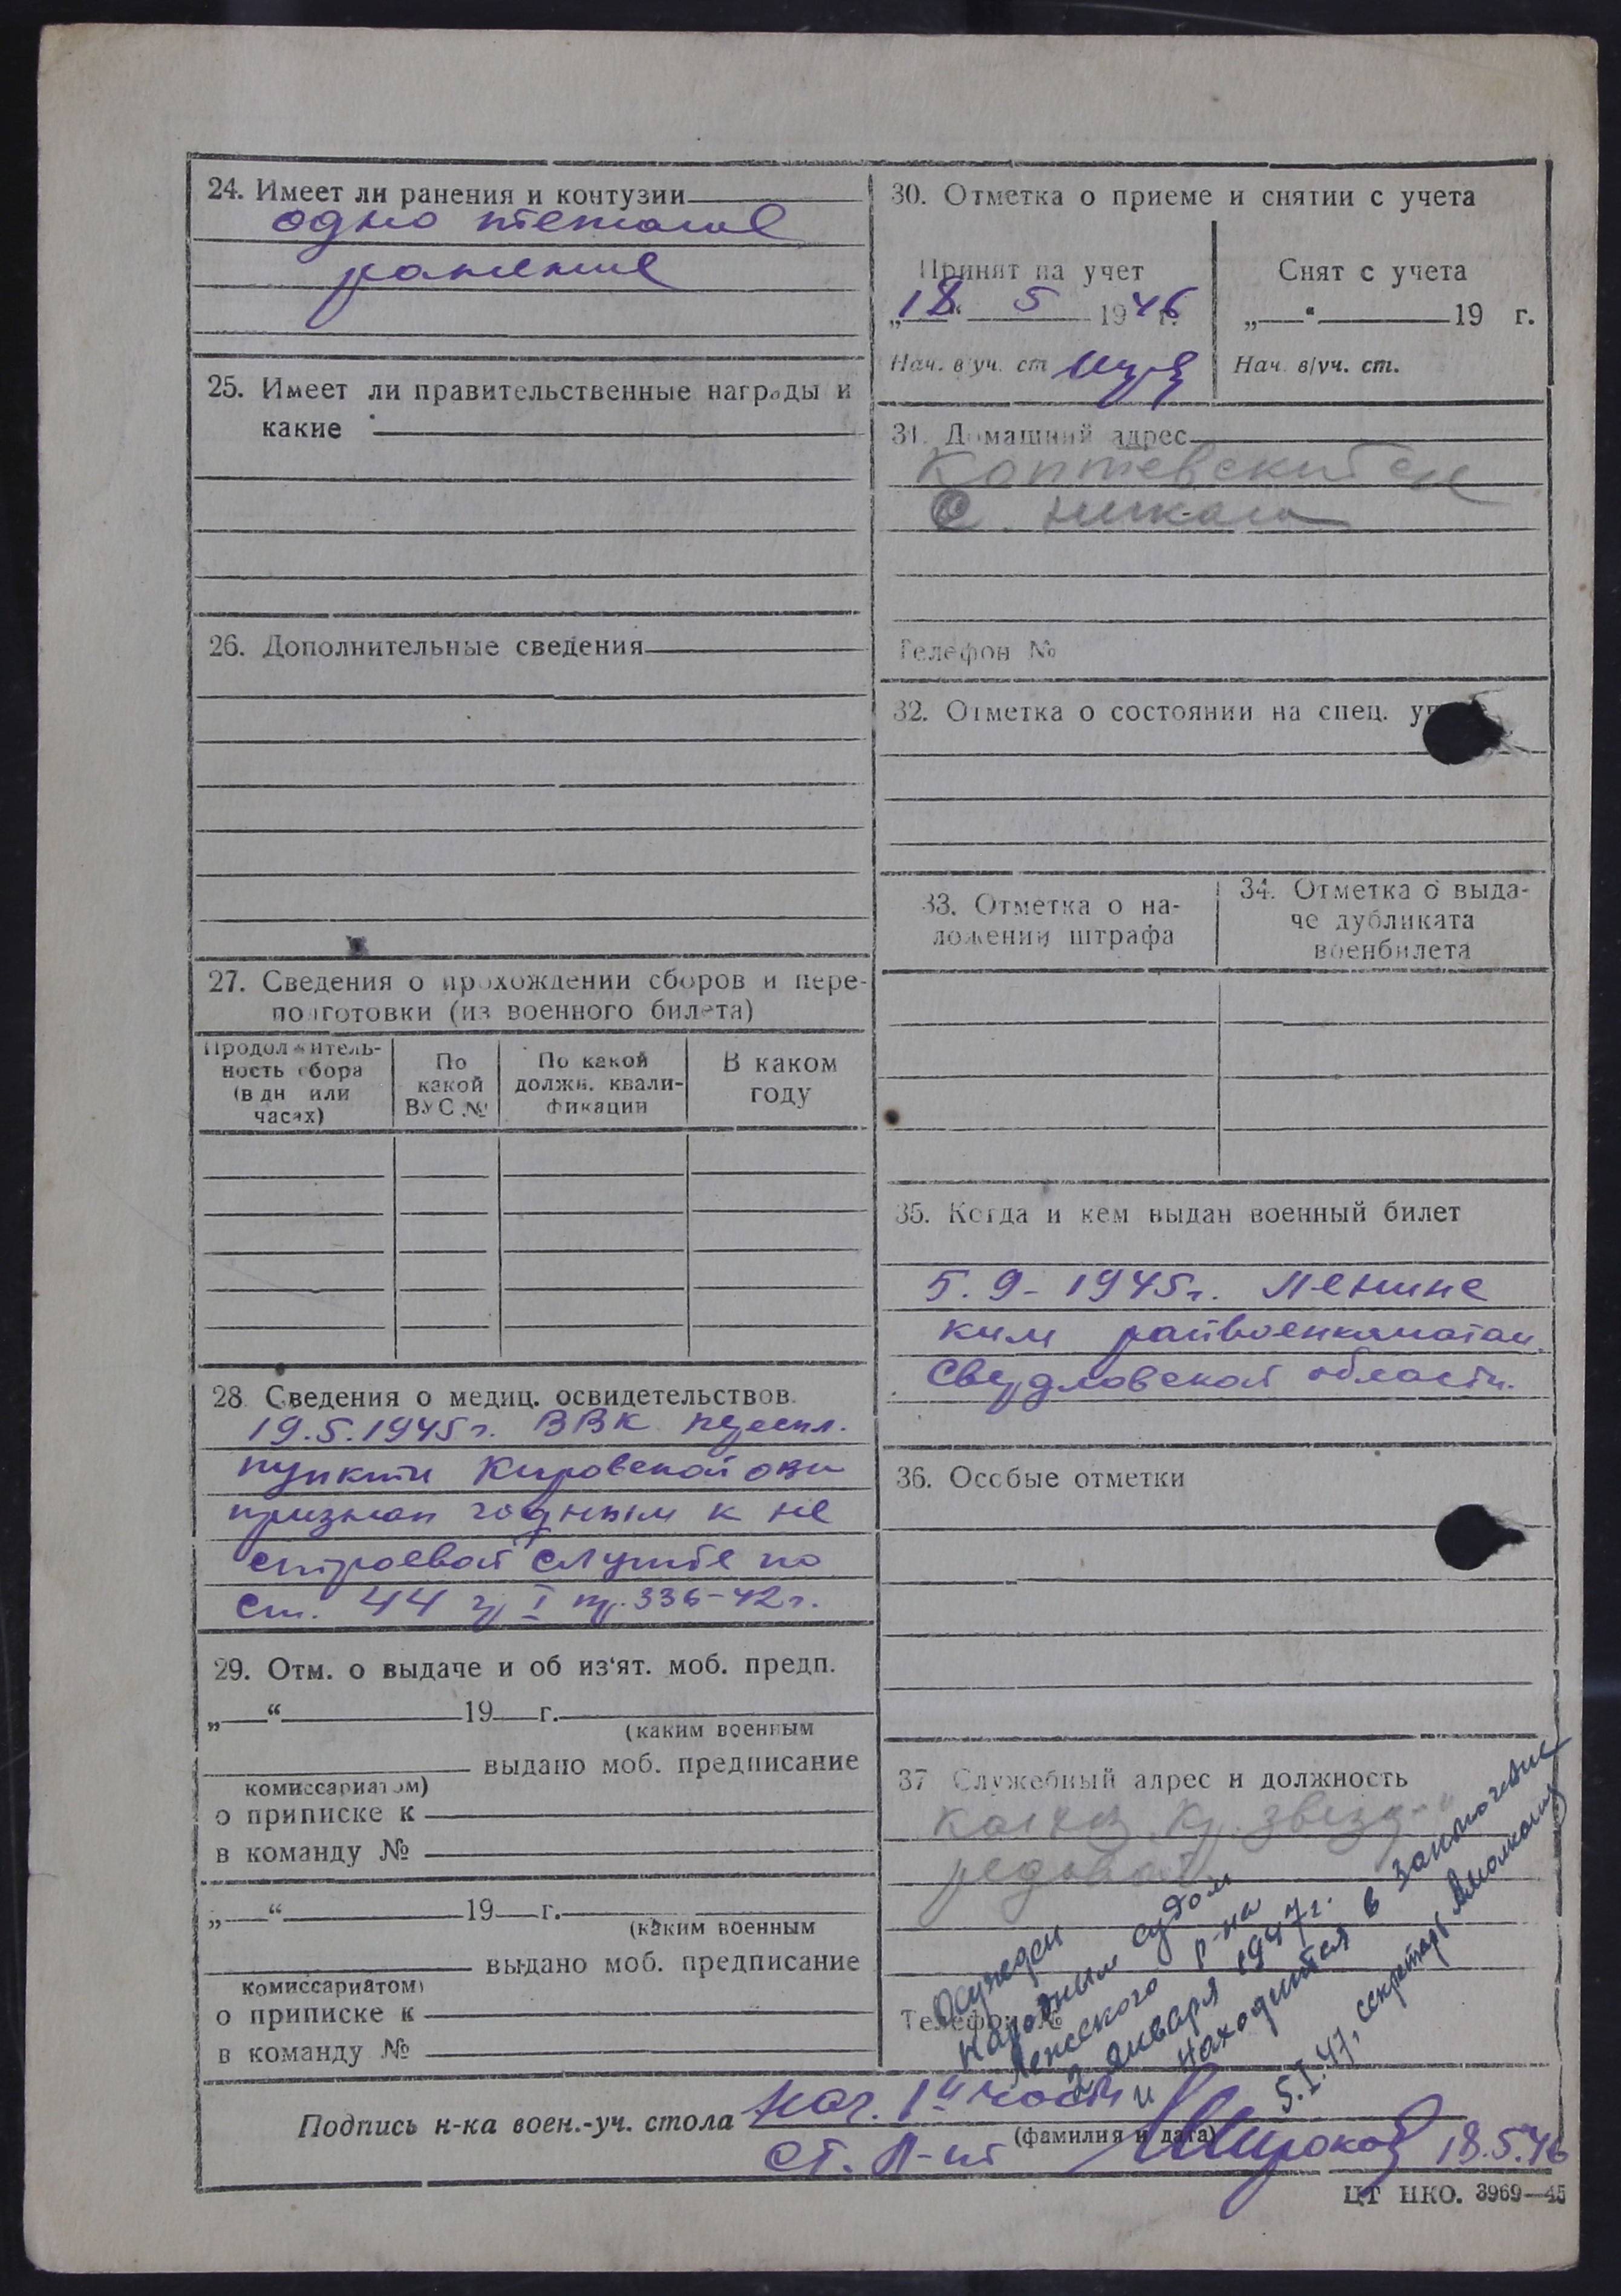 24. Имеет ли ранения и контузии
одно тяжелое
ранение
25. Имеет ли правительственные награды и
какие
26. Дополнительные сведения
27. Сведения о прохождении сборов и пере-
подготовки (из военного билета)
Продолжитель-
ность сбора
(в дн или
часах)
По
какой
ВУС №
По какой
должн. квали-
фикации
В каком
году
28 Сведения о медиц. освидетельствов.
19.5.1945 г. ВВК
пункта Кировской обл
признан годным к не
строевой службе по
ст. 44 гр I пр. 336-42 г.
29. Отм. о выдаче и об из'ят. моб. предп.
„ “ 19 г.
(каким военным
выдано моб. предписание
комиссариатом)
о приписке к
в команду №
„ “ 19 г.
(каким военным
выдано моб. предписание
комиссариатом)
о приписке к
в команду №
30. Отметка о приеме и снятии с учета
Принят на учет
„18“ 5 1946 г.
Нач. в/уч. ст
Снят с учета
„ “ 19 г.
Нач. в/уч. ст.
31. Домашний адрес
Коптевский с/с
с.
Телефон №
32. Отметка о состоянии на спец.
33. Отметка о на-
ложении штрафа
34. Отметка о выда-
че дубликата
военбилета
35. Когда и кем выдан военный билет
5.9-1945г. Ленинс
ким райвоенкоматом
Свердловской области.
36. Особые отметки
37 Служебный адрес и должность
колхоз Кр. звезда
рядовой
Телефон №
Осужден
Народным судом
Ленского р-на
2 января 1947 г.
и находится в заключение
5.I.47, секретарь
Подпись н-ка воен.-уч. стола нач. 1й части
(фамилия и дата)
ст. л-нт Широков 18.5.46
ЦТ НКО. 3969—45